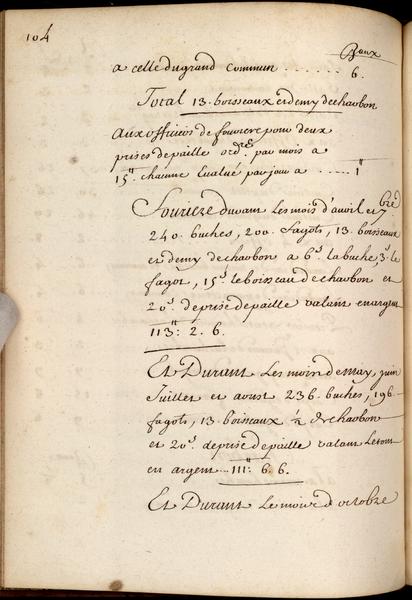 104
B.aux
a celle du grand Commun ...... 6.
Total 13. boisseaux et demy de charbon
Aux officiers de fouriere pour deux
prises de paille ord.re par mois a
15s chacune Evalué par jour a ..... 1s
Fouriere durant les mois d'avril et 7.bre
240. buches, 200. fagots, 13. boisseaux
et demy de charbon a 6s la buche, 3s le
fagot, 15s le boisseau de charbon et
20s de prise de paille valant en argent
113tt: 2. 6.
Et Durant Les mois de May, juin
Juillet et aoust 236. buches, 196
fagots, 13. boisseaux ½ de charbon
et 20s de prise de paille valant le tout
en argent ... 111tt: 6. 6.
Et Durant le mois d'octobre